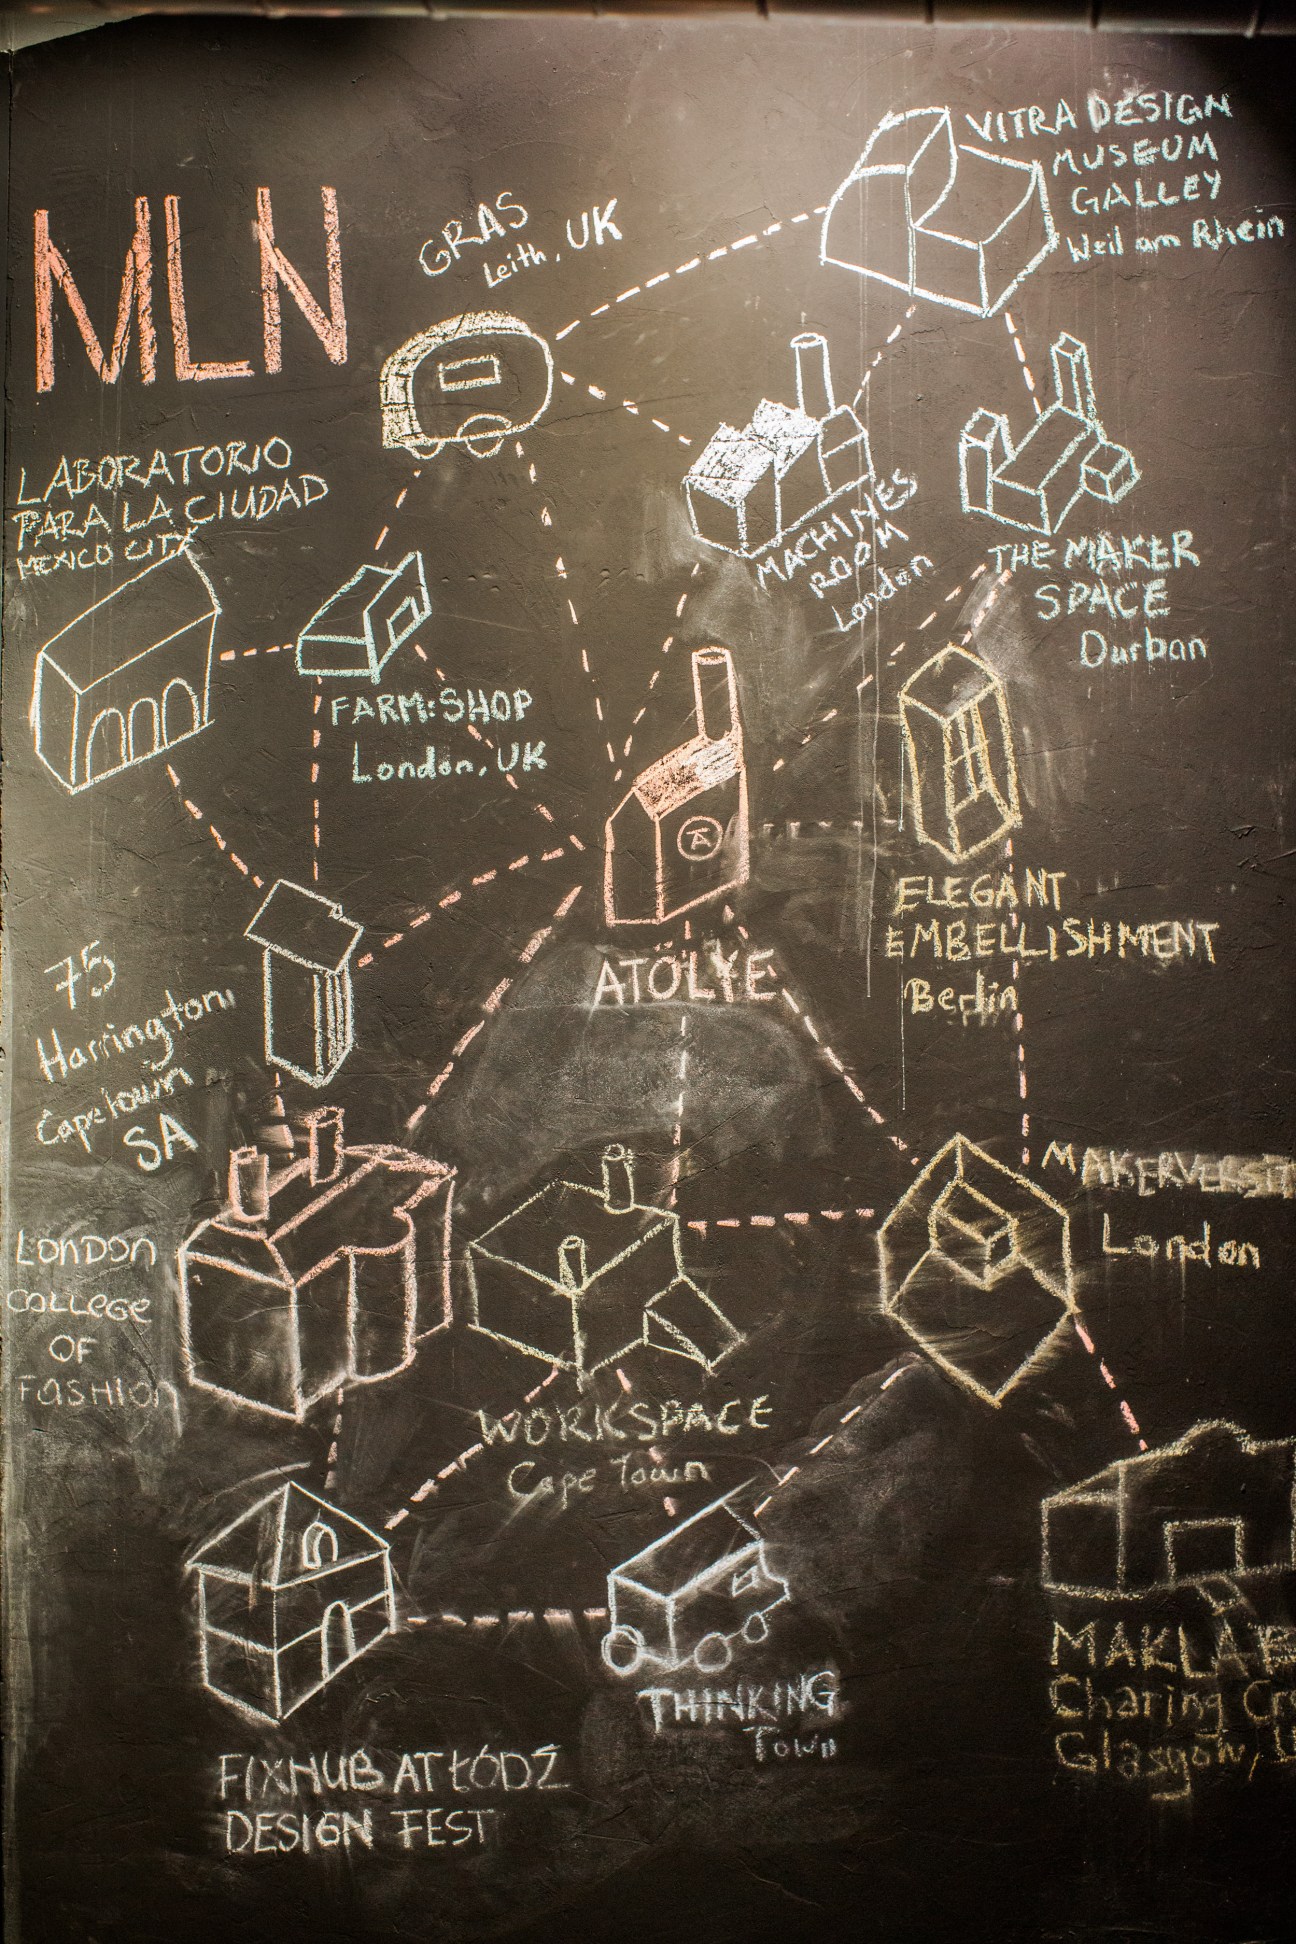 MLN
GRAS
Leith, UK
VITRA DESIGN
MUSEUM
GALLEY
Weil am Rhein
LABORATORIO
PARA LA CIUDAD
MEXICO CITY
MACHINES
ROOM
London
THE MAKER
SPACE
Durban
FARM:SHOP
London, UK
ATÖLYE
ELEGANT
EMBELLISHMENT
Berlin
75
Harrington
Capetown
SA
MAKERVERSITY
London
LONDON
COLLEGE
OF
FASHION
WORKSPACE
Cape Town
THINKING
Town
MAKLAB
Charing
Glasgow,
FIXHUB AT ŁÓDŹ
DESIGN FEST